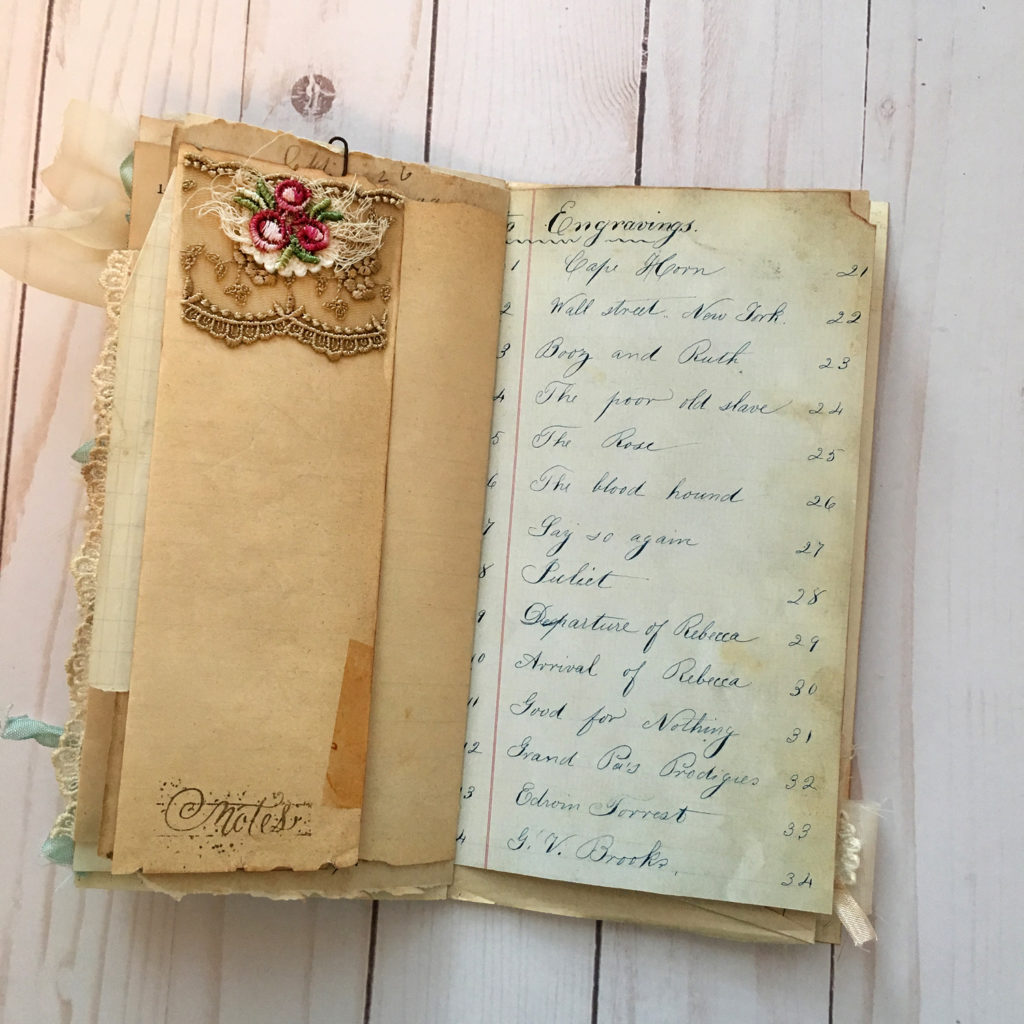 Notes
Engravings.
1 Cape Horn 21
2 Wall street. New York. 22
3 Booz and Ruth 23
4 The poor old slave 24
5 The Rose 25
6 The blood hound 26
7 Say so again 27
8 Juliet 28
9 Departure of Rebecca 29
10 Arrival of Rebecca 30
11 Good for Nothing 31
12 Grand Pa's Prodigies 32
3 Edwin Forrest 33
4 G. V. Brooks. 34